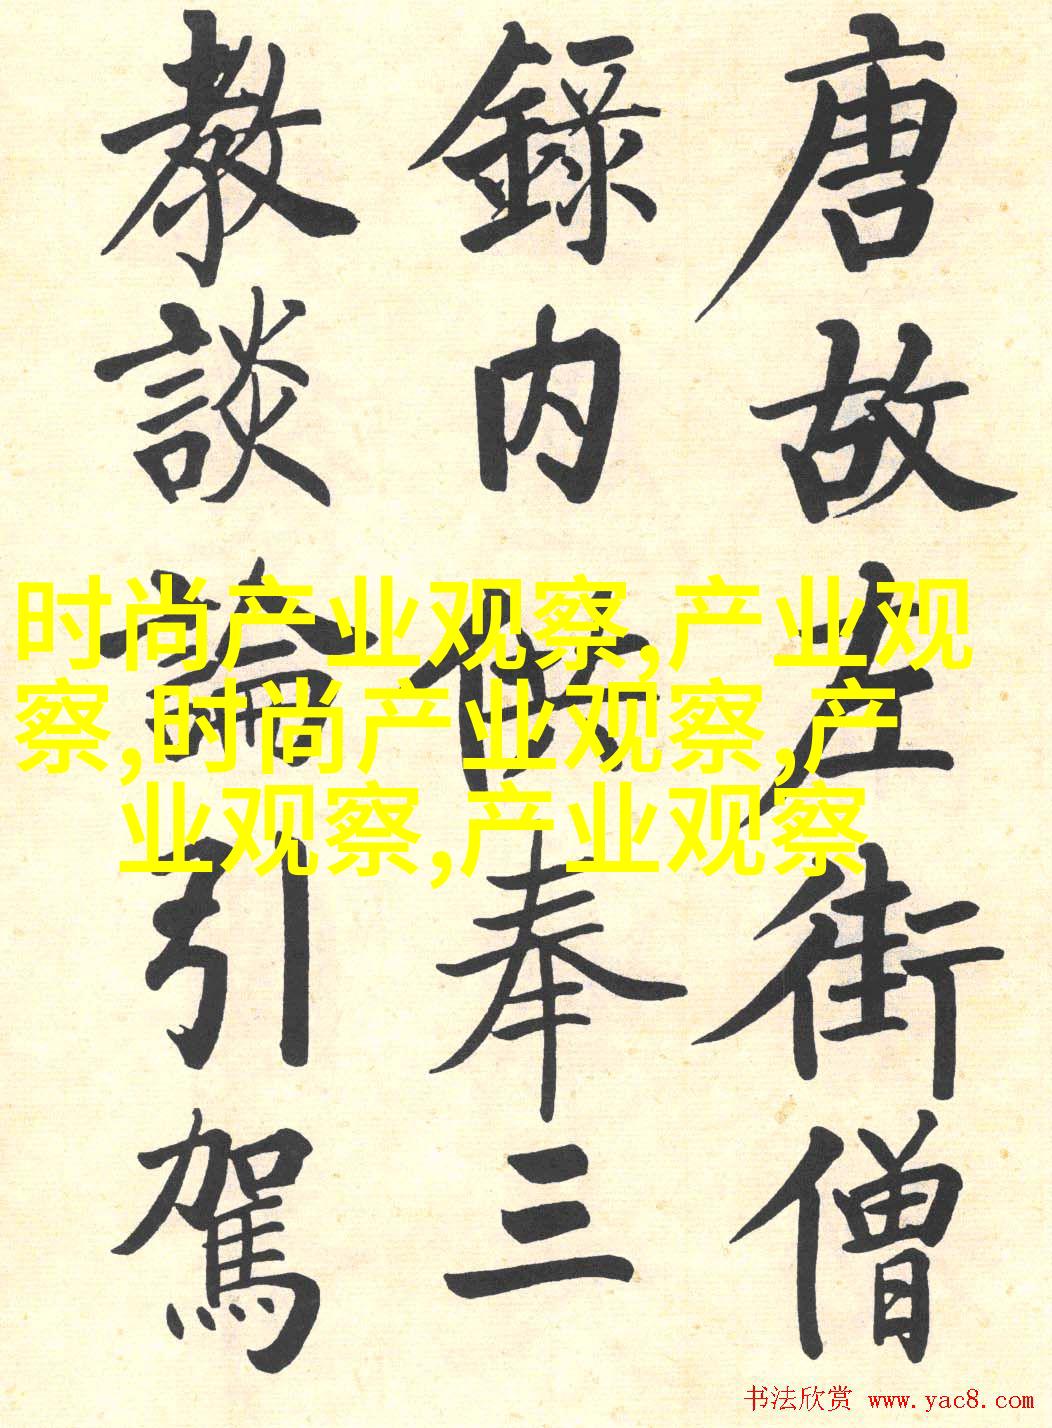 唐故左街僧
錄内供奉三
教談論引駕
时尚产业观察,产业观
察,时尚产业观察,产
业观察,产业观察
书法欣赏 www.yac8.com